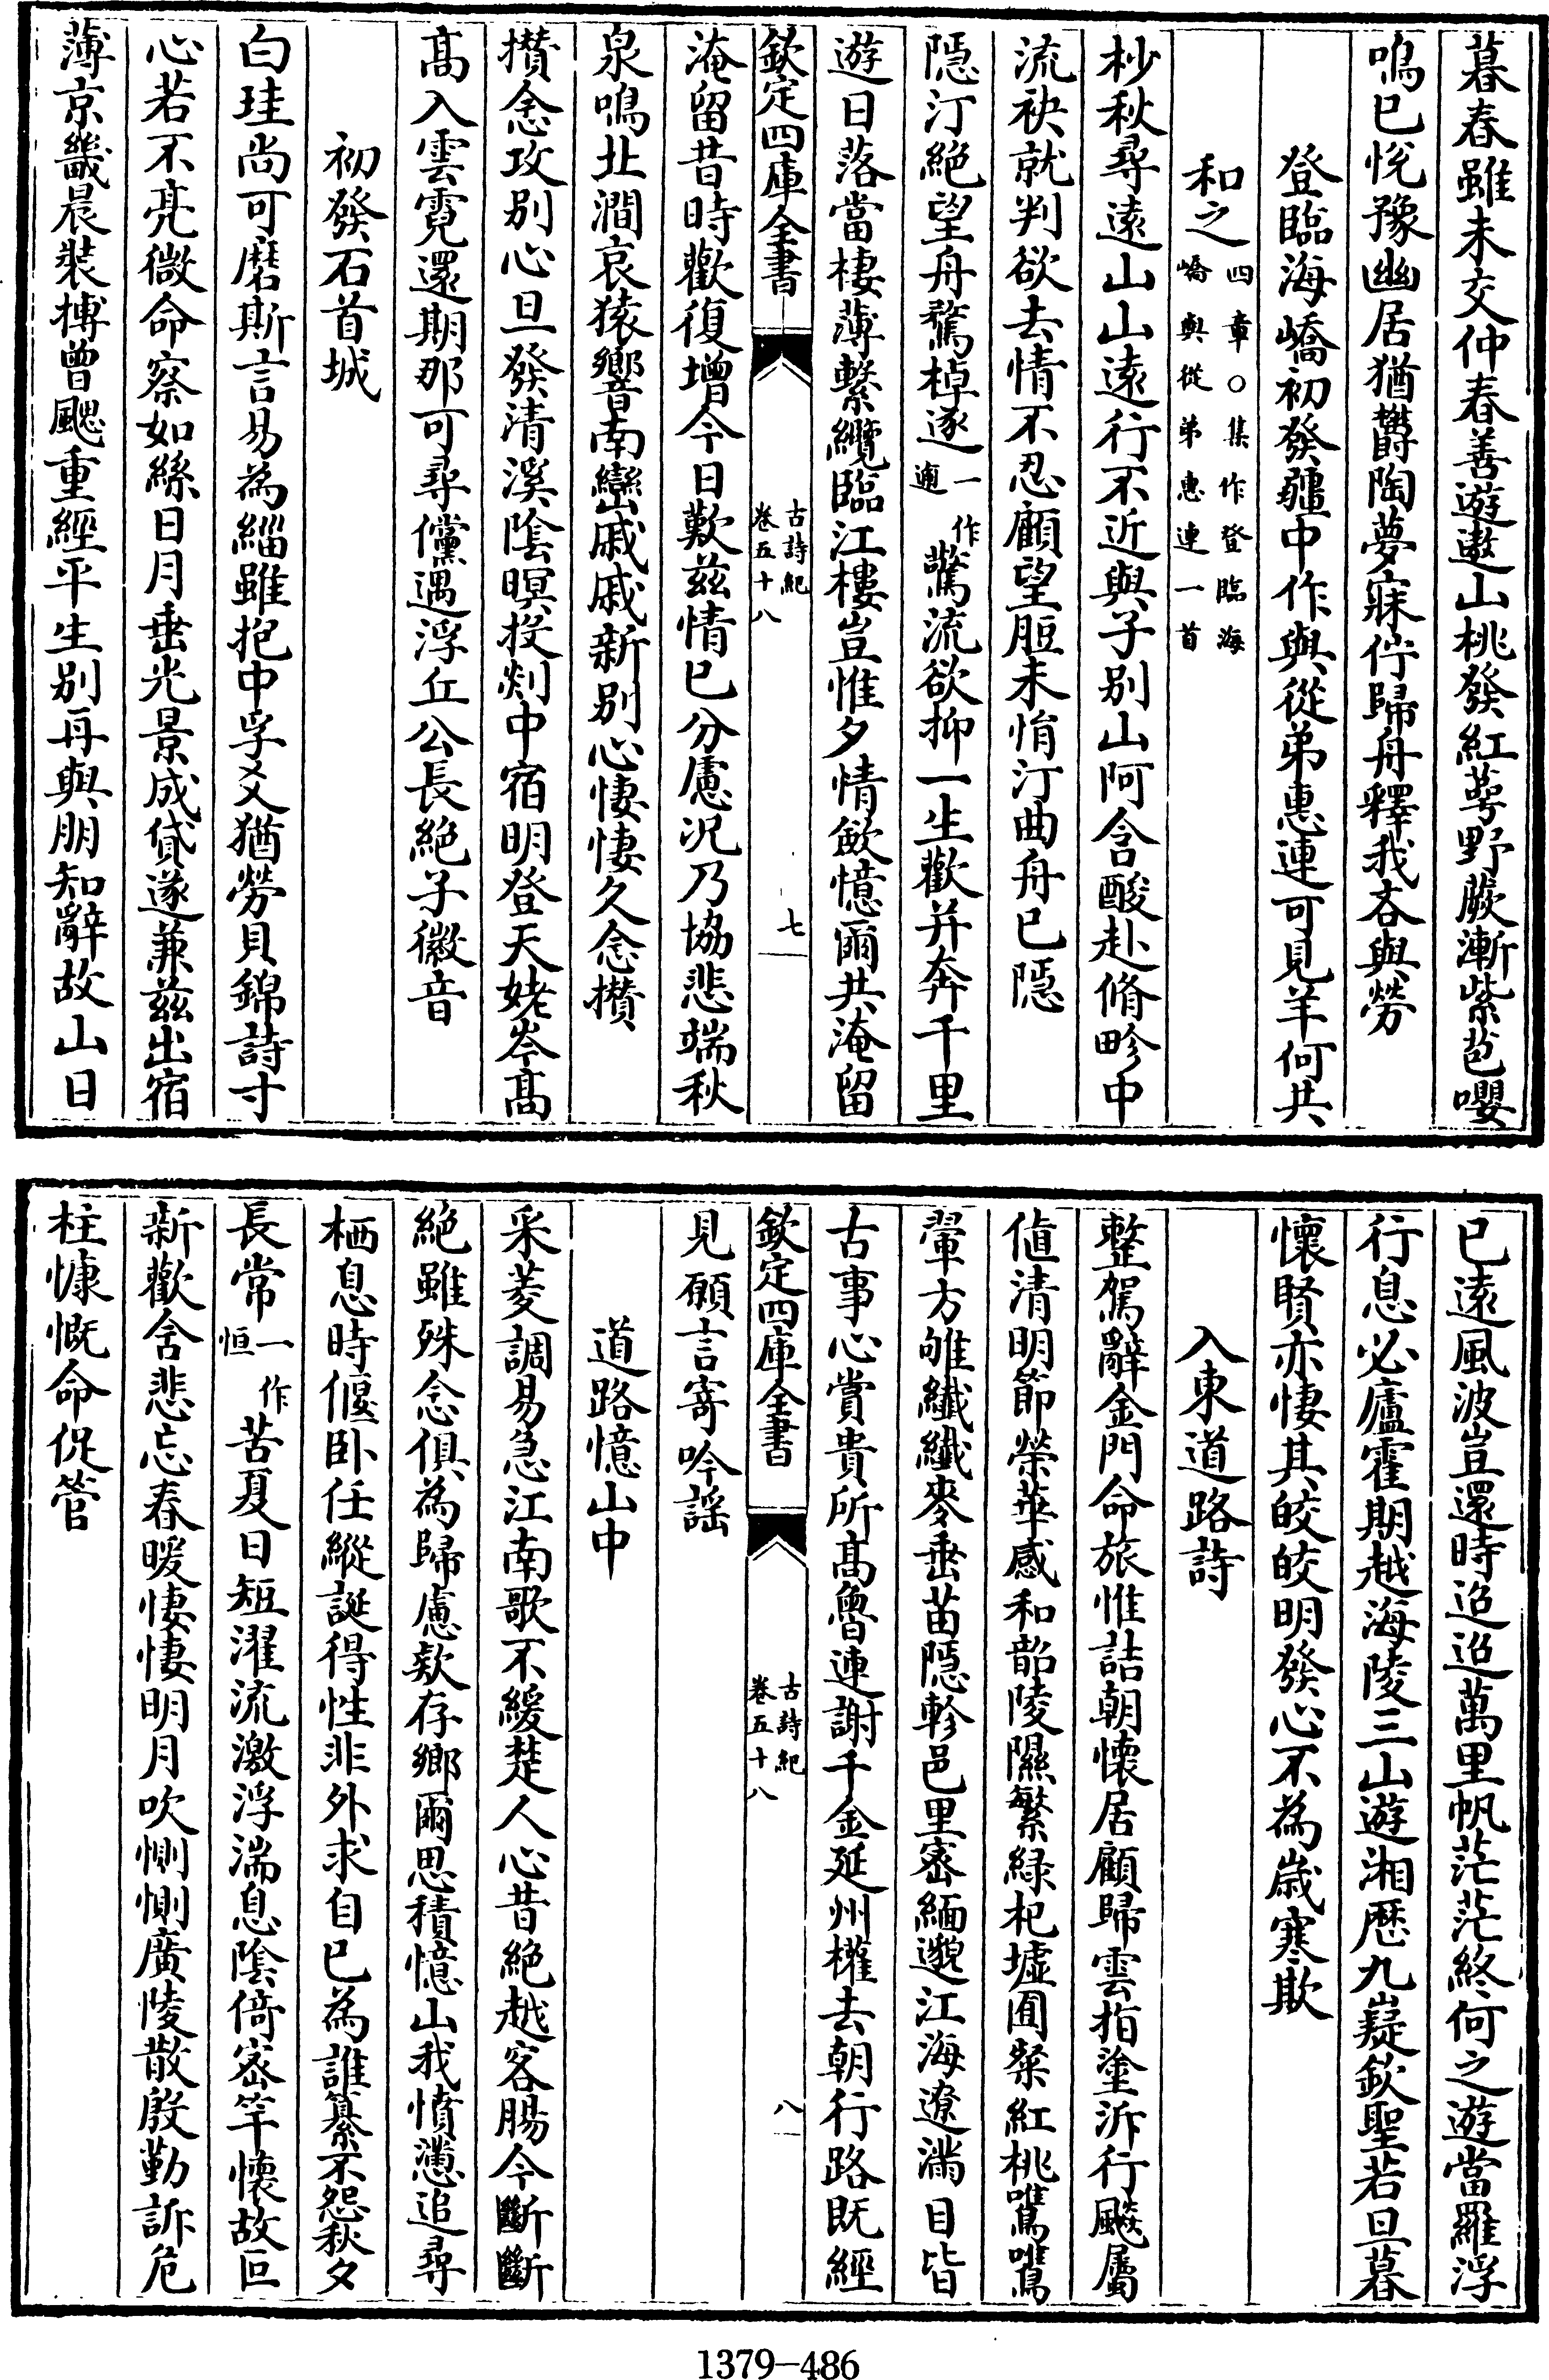 暮春雖未交仲春善遊遨山桃發紅萼野蕨漸紫苞嚶
鳴已悅豫幽居猶鬱陶夢寐佇歸舟釋我吝與勞
登臨海嶠初發疆中作與從弟惠連可見羊何共
和之四章○集作登臨海嶠與從弟惠連一首
杪秋尋遠山山遠行不近與子别山阿含酸赴脩畛中
流袂就判欲去情不忍顧望脰未悁汀曲舟已隠
隠汀絶望舟騖棹逐一作逋驚流欲抑一生歡并奔千里
遊日落當棲薄繫纜臨江樓豈惟夕情歛憶爾共淹留
欽定四庫全書
古詩紀
卷五十八
七
淹留昔時歡復增今日歎兹情已分慮況乃協悲端秋
泉鳴北澗哀猿響南巒戚戚新别心悽悽久念攅
攅念攻别心旦發清溪陰暝投剡中宿明登天姥岑髙
髙入雲霓還期那可尋儻遇浮丘公長絶子徽音
初發石首城
白珪尚可磨斯言易為緇雖抱中孚爻猶勞貝錦詩寸
心若不亮微命察如絲日月垂光景成貸遂兼兹出宿
薄京畿晨裝摶曾颸重經平生别再與朋知辭故山日
已遠風波豈還時迢迢萬里帆茫茫終何之遊當羅浮
行息必廬霍期越海陵三山遊湘厯九嶷欽聖若旦暮
懷賢亦悽其皎皎明發心不為嵗寒欺
入東道路詩
整駕辭金門命旅惟詰朝懷居顧歸雲指塗泝行飈屬
值清明節榮華感和韶陵隰繁緑杞墟囿粲紅桃嚖鷕嚖
翬方雊纎纎麥垂苗隠軫邑里宻緬邈江海遼滿目皆
古事心賞貴所髙魯連謝千金延州權去朝行路既經
欽定四庫全書
古詩紀
卷五十八
八
見願言寄吟謡
道路憶山中
采菱調易急江南歌不緩楚人心昔絶越客腸今斷斷
絶雖殊念俱為歸慮欵存鄉爾思積憶山我憤懣追尋
栖息時偃卧任縱誕得性非外求自已為誰纂不怨秋夕
長常一作恒苦夏日短濯流激浮湍息陰倚宻竿懷故叵
新歡含悲忘春暖悽悽明月吹惻惻廣陵散殷勤訴危
柱慷慨命促管
1379-486